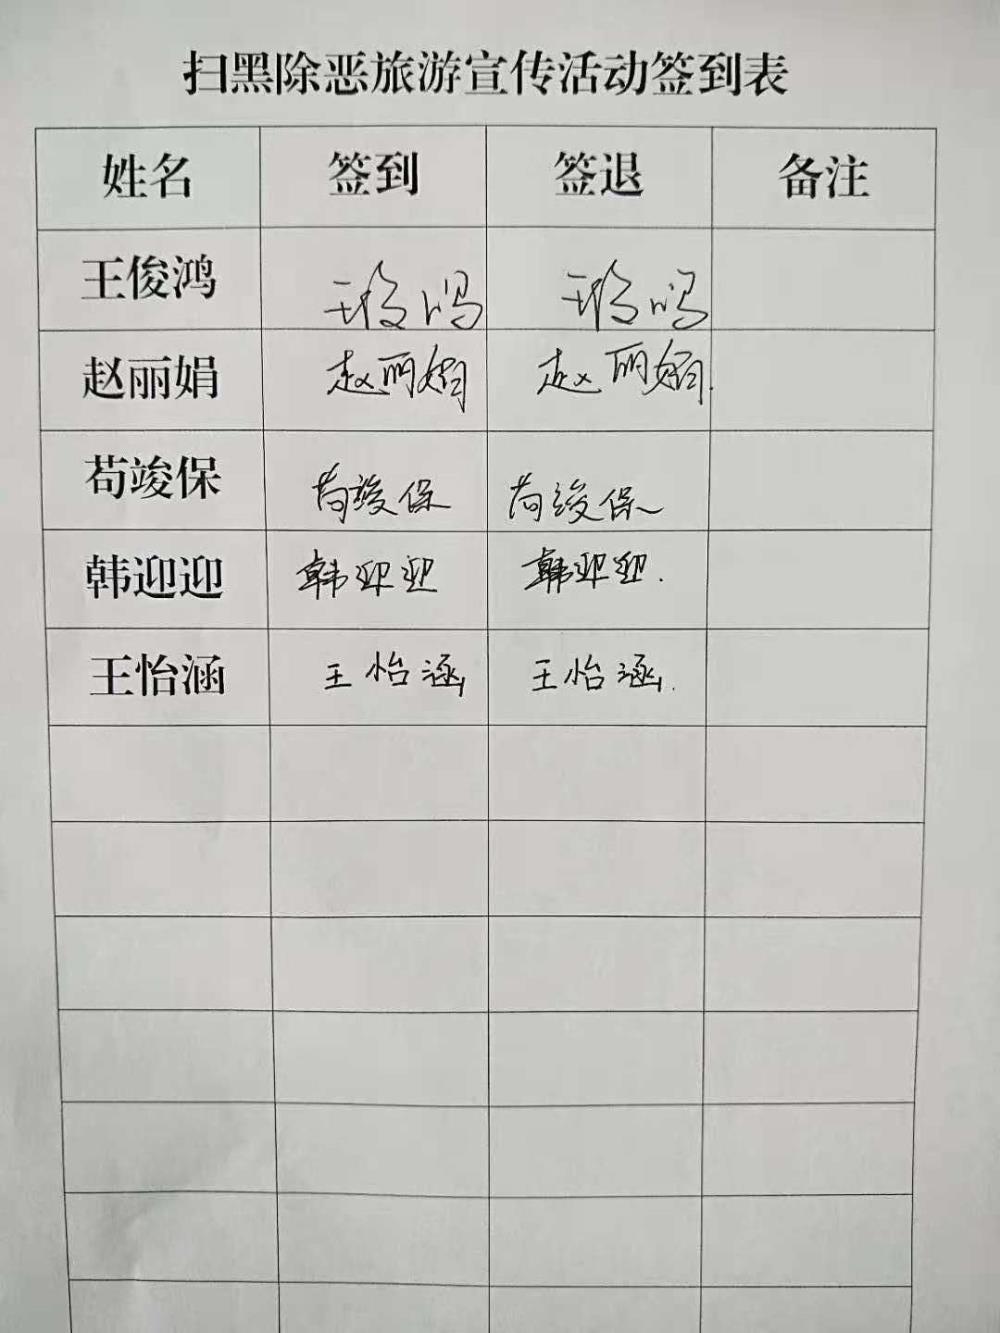 扫黑除恶旅游宣传活动签到表
姓名 签到 签退 备注
王俊鸿 王俊鸿 王俊鸿
赵丽娟 赵丽娟 赵丽娟.
苟竣保 苟竣保 苟竣保
韩迎迎 韩迎迎 韩迎迎.
王怡涵 王怡涵 王怡涵.